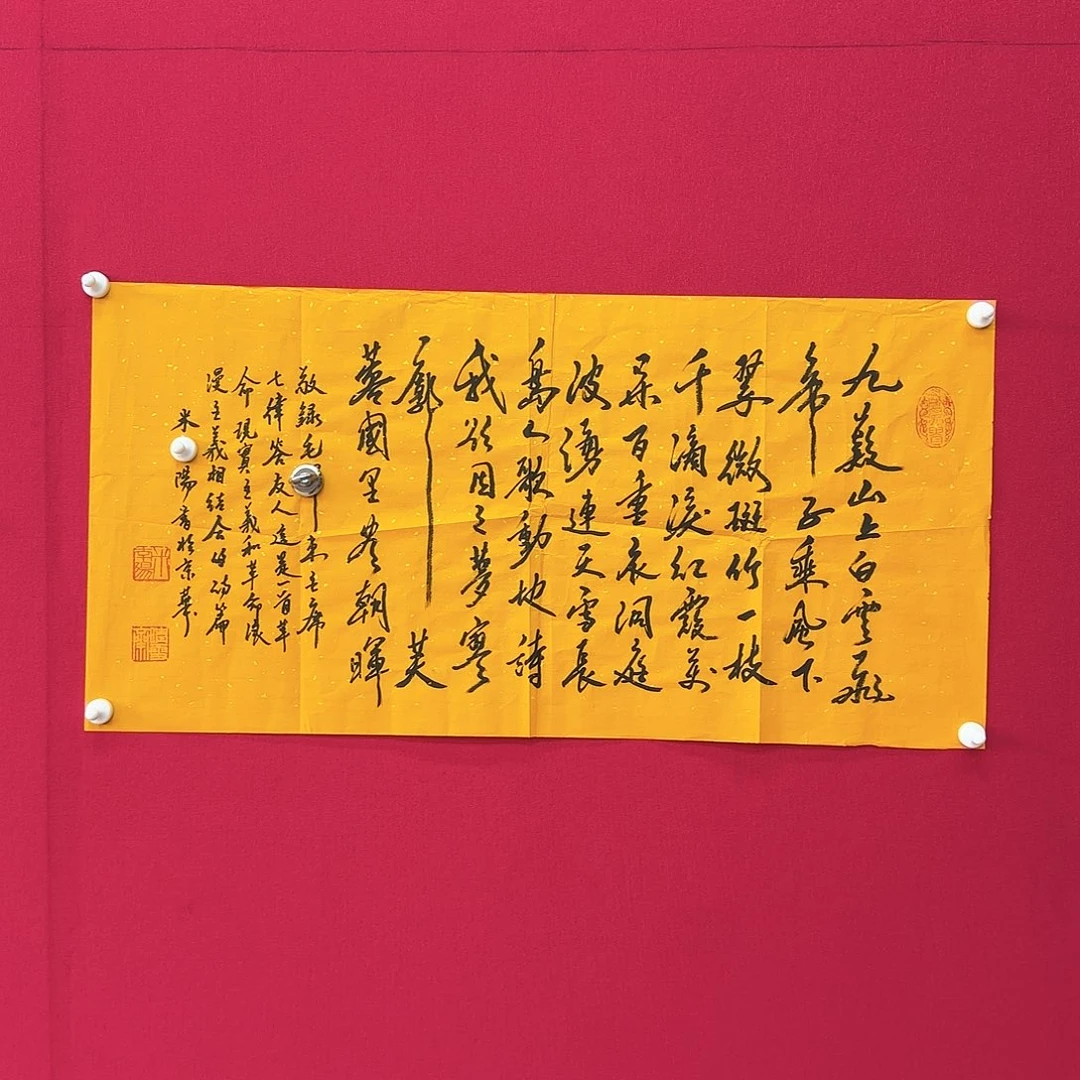 九嶷山上白雲飛
帝子乘風下
翠微斑竹一枝
千滴淚紅霞萬
朵百重衣洞庭
波湧連天雪長
島人歌動地詩
我欲因之夢寥
廓芙
蓉國里盡朝暉
敬錄毛東主席
七律答友人這是一首革
命現實主義和革命浪
漫主義相結合的詩篇
米陽書於京華